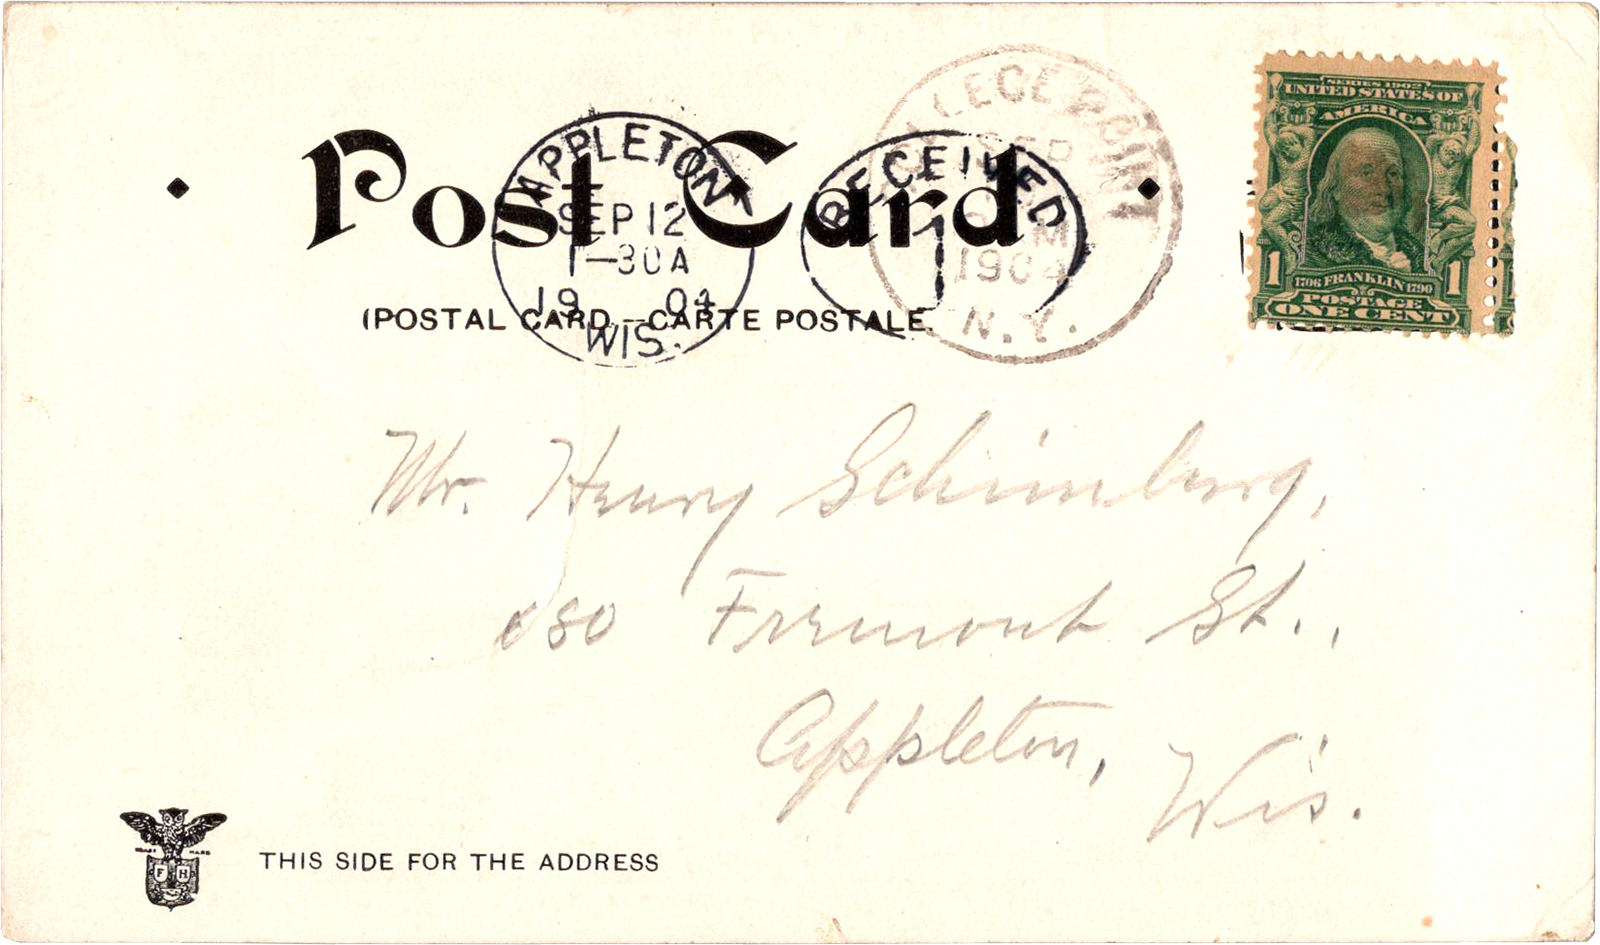 Post Card
(POSTAL CARD.—CARTE POSTALE.
APPLETON
SEP 12
1-30A
1904
WIS.
RECEIVED
COLLEGE POINT
SEP
M
1904
N.Y.
SERIES 1902
UNITED STATES OF
AMERICA
1706 FRANKLIN 1790
1 1
POSTAGE
ONE CENT
Mr. Henry Schimberg,
680 Fremont St.,
Appleton, Wis.
TRADE MARK
F H
THIS SIDE FOR THE ADDRESS